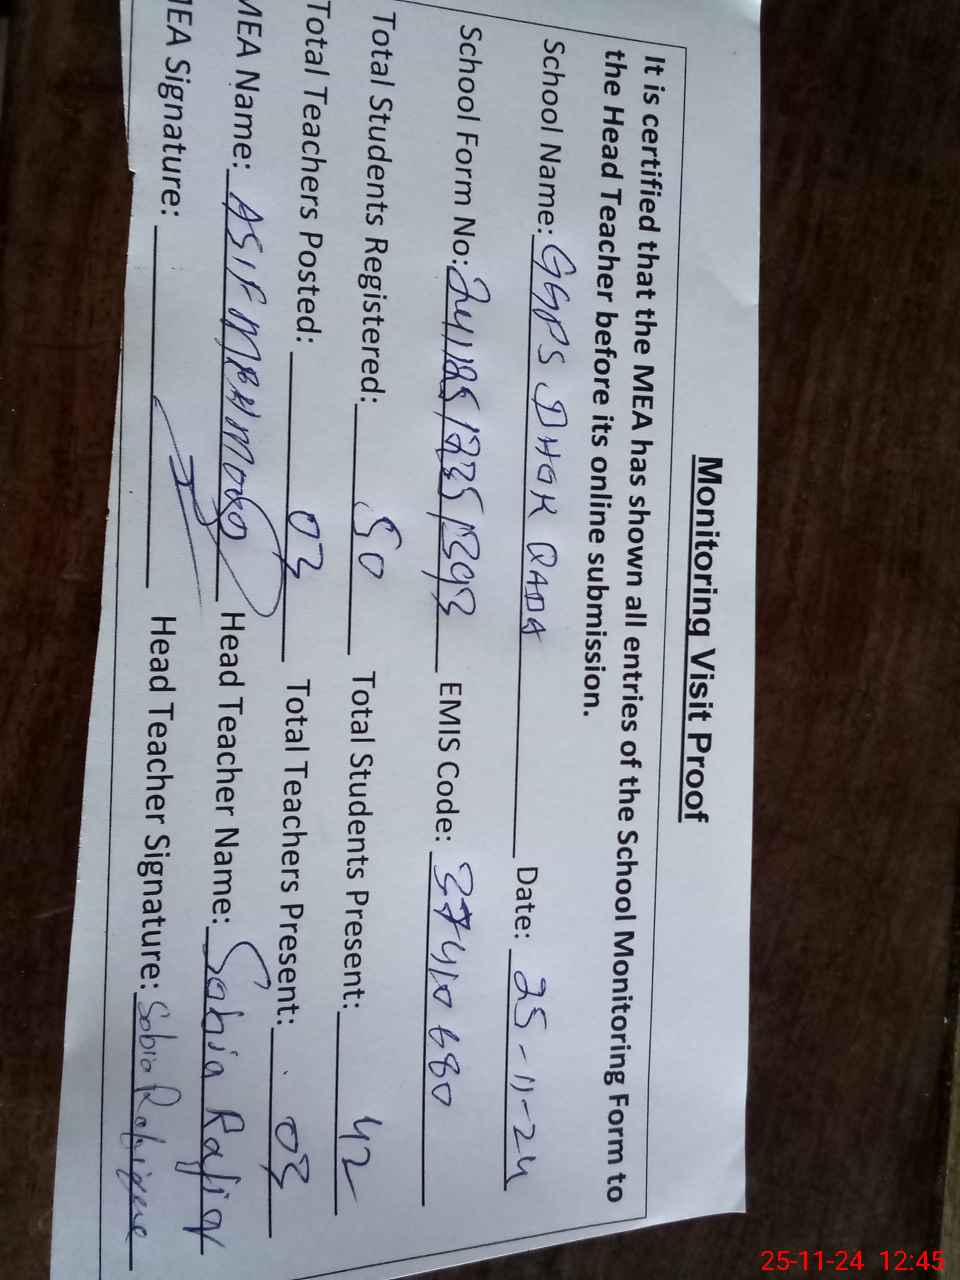 Monitoring Visit Proof
It is certified that the MEA has shown all entries of the School Monitoring Form to
the Head Teacher before its online submission.
School Name: GGPS DHOK QADA Date: 25-11-24
School Form No: EMIS Code: 37410680
Total Students Registered: 50 Total Students Present: 42
Total Teachers Posted: 03 Total Teachers Present: 03
MEA Name: ASIF MEHMOOD Head Teacher Name: Sobia Rafiq
MEA Signature: Head Teacher Signature: Sobia
25-11-24 12:45